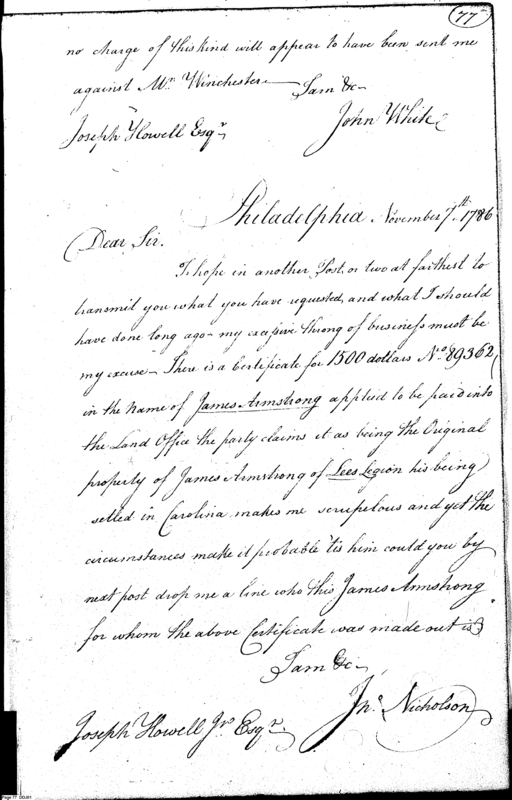 77
no charge of this kind will appear to have been sent me
against Mr. Winchester
I am &c
John White
Joseph Howell Esqr
Philadelphia November 7th 1786
Dear Sir.
I hope in another Post or two at farthest to
transmit you what you have requested, and what I should
have done long ago - my excessive throng of business must be
my excuse - There is a Certificate for 1500 dollars No. 89362
in the name of James Armstrong applied to be paid into
the Land Office the party claims it as being the Original
property of James Armstrong of Lees Legion his being
settled in Carolina makes me scrupelous and yet the
circumstances make it probable 'tis him could you by
next post drop me a line who this James Armstrong
for whom the above Certificate was made out is
I am &c
Jno. Nicholson
Joseph Howell Jr. Esqr